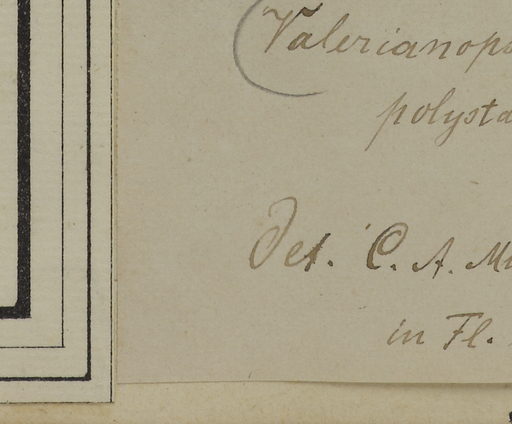 Valerianops
polysta
Det. C. A. Mü
in Fl.